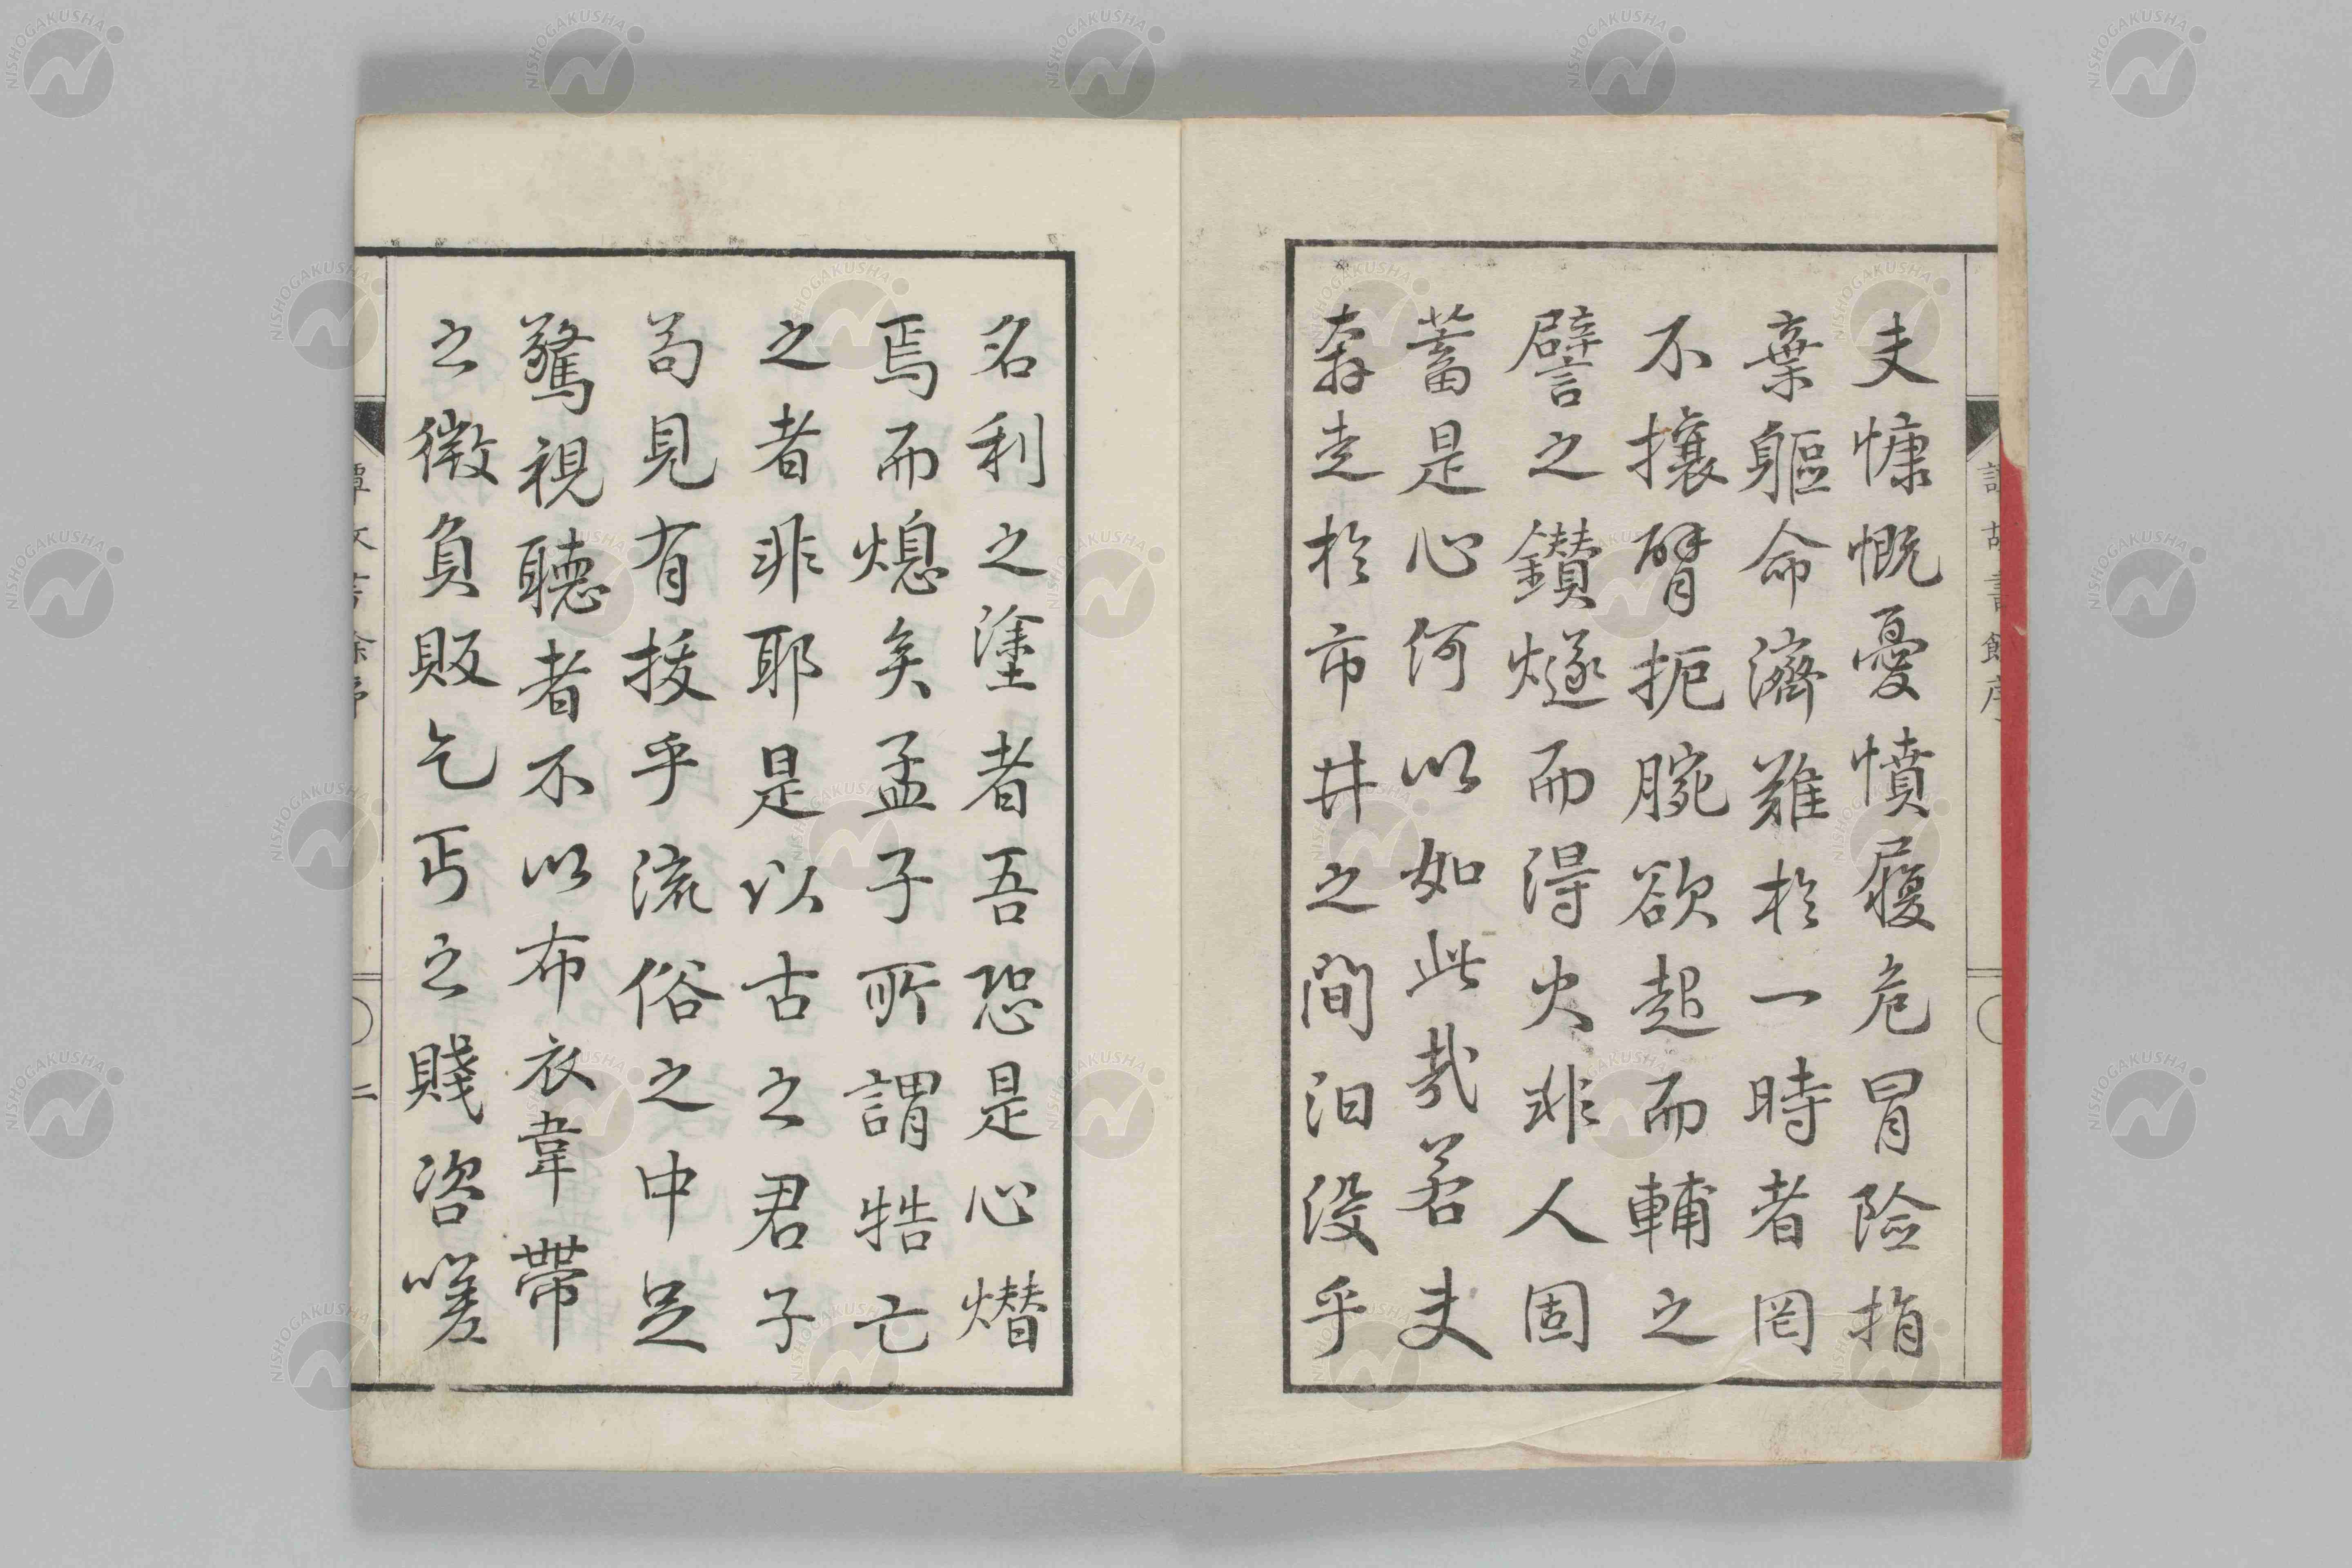 夫慷慨憂憤履危冒險捐
棄軀命濟難於一時者罔
不攘臂扼腕欲起而輔之
譬之鑽燧而得火非人固
蓄是心何以如此哉若夫
奔走於市井之間汨没乎
名利之塗者吾恐是心熸
焉而熄矣孟子所謂牿亡
之者非耶是以古之君子
苟見有拔乎流俗之中足
驚視聽者不以布衣韋帶
之微負販乞丐之賤咨嗟
NISHOGAKUSHA